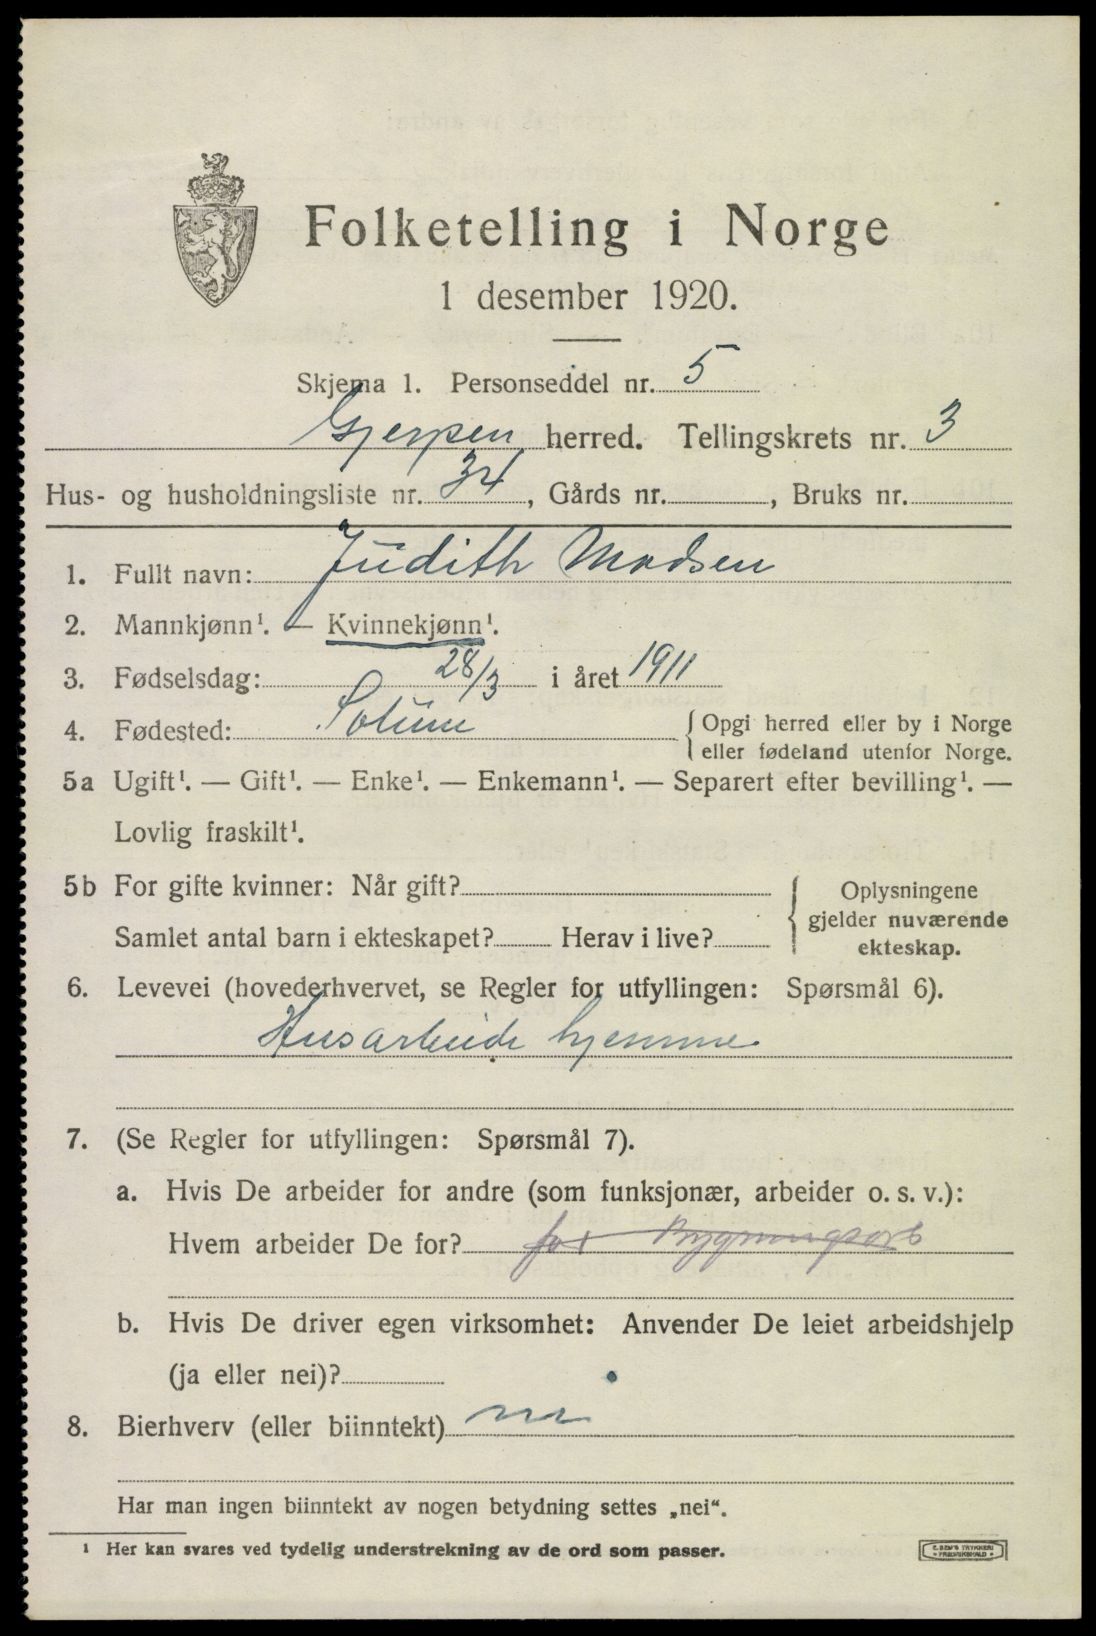 Folketelling i Norge
1 desember 1920.
Skjema 1. Personseddel nr. 5
Gjerpen herred. Tellingskrets nr. 3
Hus- og husholdningsliste nr. 34, Gårds nr. , Bruks nr.
1. Fullt navn: Judith Madsen
2. Mannkjønn¹. — Kvinnekjønn¹.
3. Fødselsdag: 28/3 i året 1911
4. Fødested: Solum { Opgi herred eller by i Norge
eller fødeland utenfor Norge.
5a Ugift¹. — Gift¹. — Enke¹. — Enkemann¹. — Separert efter bevilling¹. —
Lovlig fraskilt¹.
5b For gifte kvinner: Når gift?
Samlet antal barn i ekteskapet? Herav i live?
{ Oplysningene
gjelder nuværende
ekteskap.
6. Levevei (hovederhvervet, se Regler for utfyllingen: Spørsmål 6).
Husarbeide hjemme
7. (Se Regler for utfyllingen: Spørsmål 7).
a. Hvis De arbeider for andre (som funksjonær, arbeider o. s. v.):
Hvem arbeider De for? far Bygningsarb
b. Hvis De driver egen virksomhet: Anvender De leiet arbeidshjelp
(ja eller nei)?
8. Bierhverv (eller biinntekt) nei
Har man ingen biinntekt av nogen betydning settes „nei“.
¹ Her kan svares ved tydelig understrekning av de ord som passer.